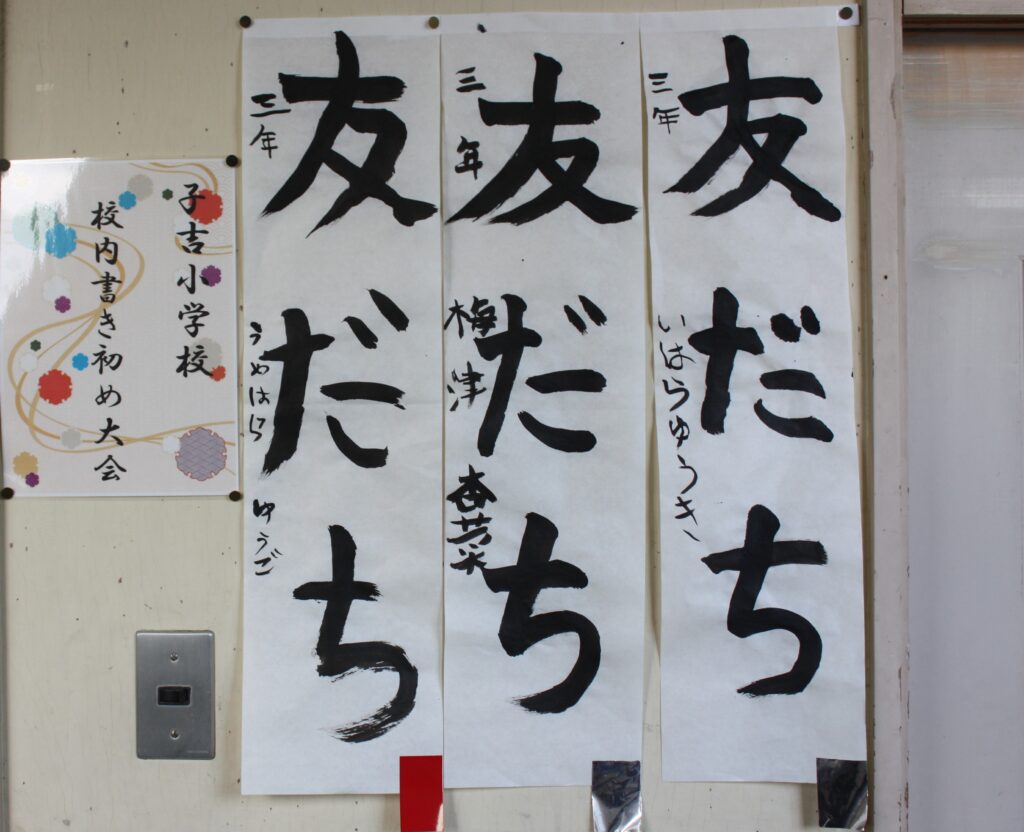 子吉小学校
校内書き初め大会
友だち
三年 いはらゆうき
友だち
三年 梅津 杏芽米
友だち
三年 うめはら ゆうご